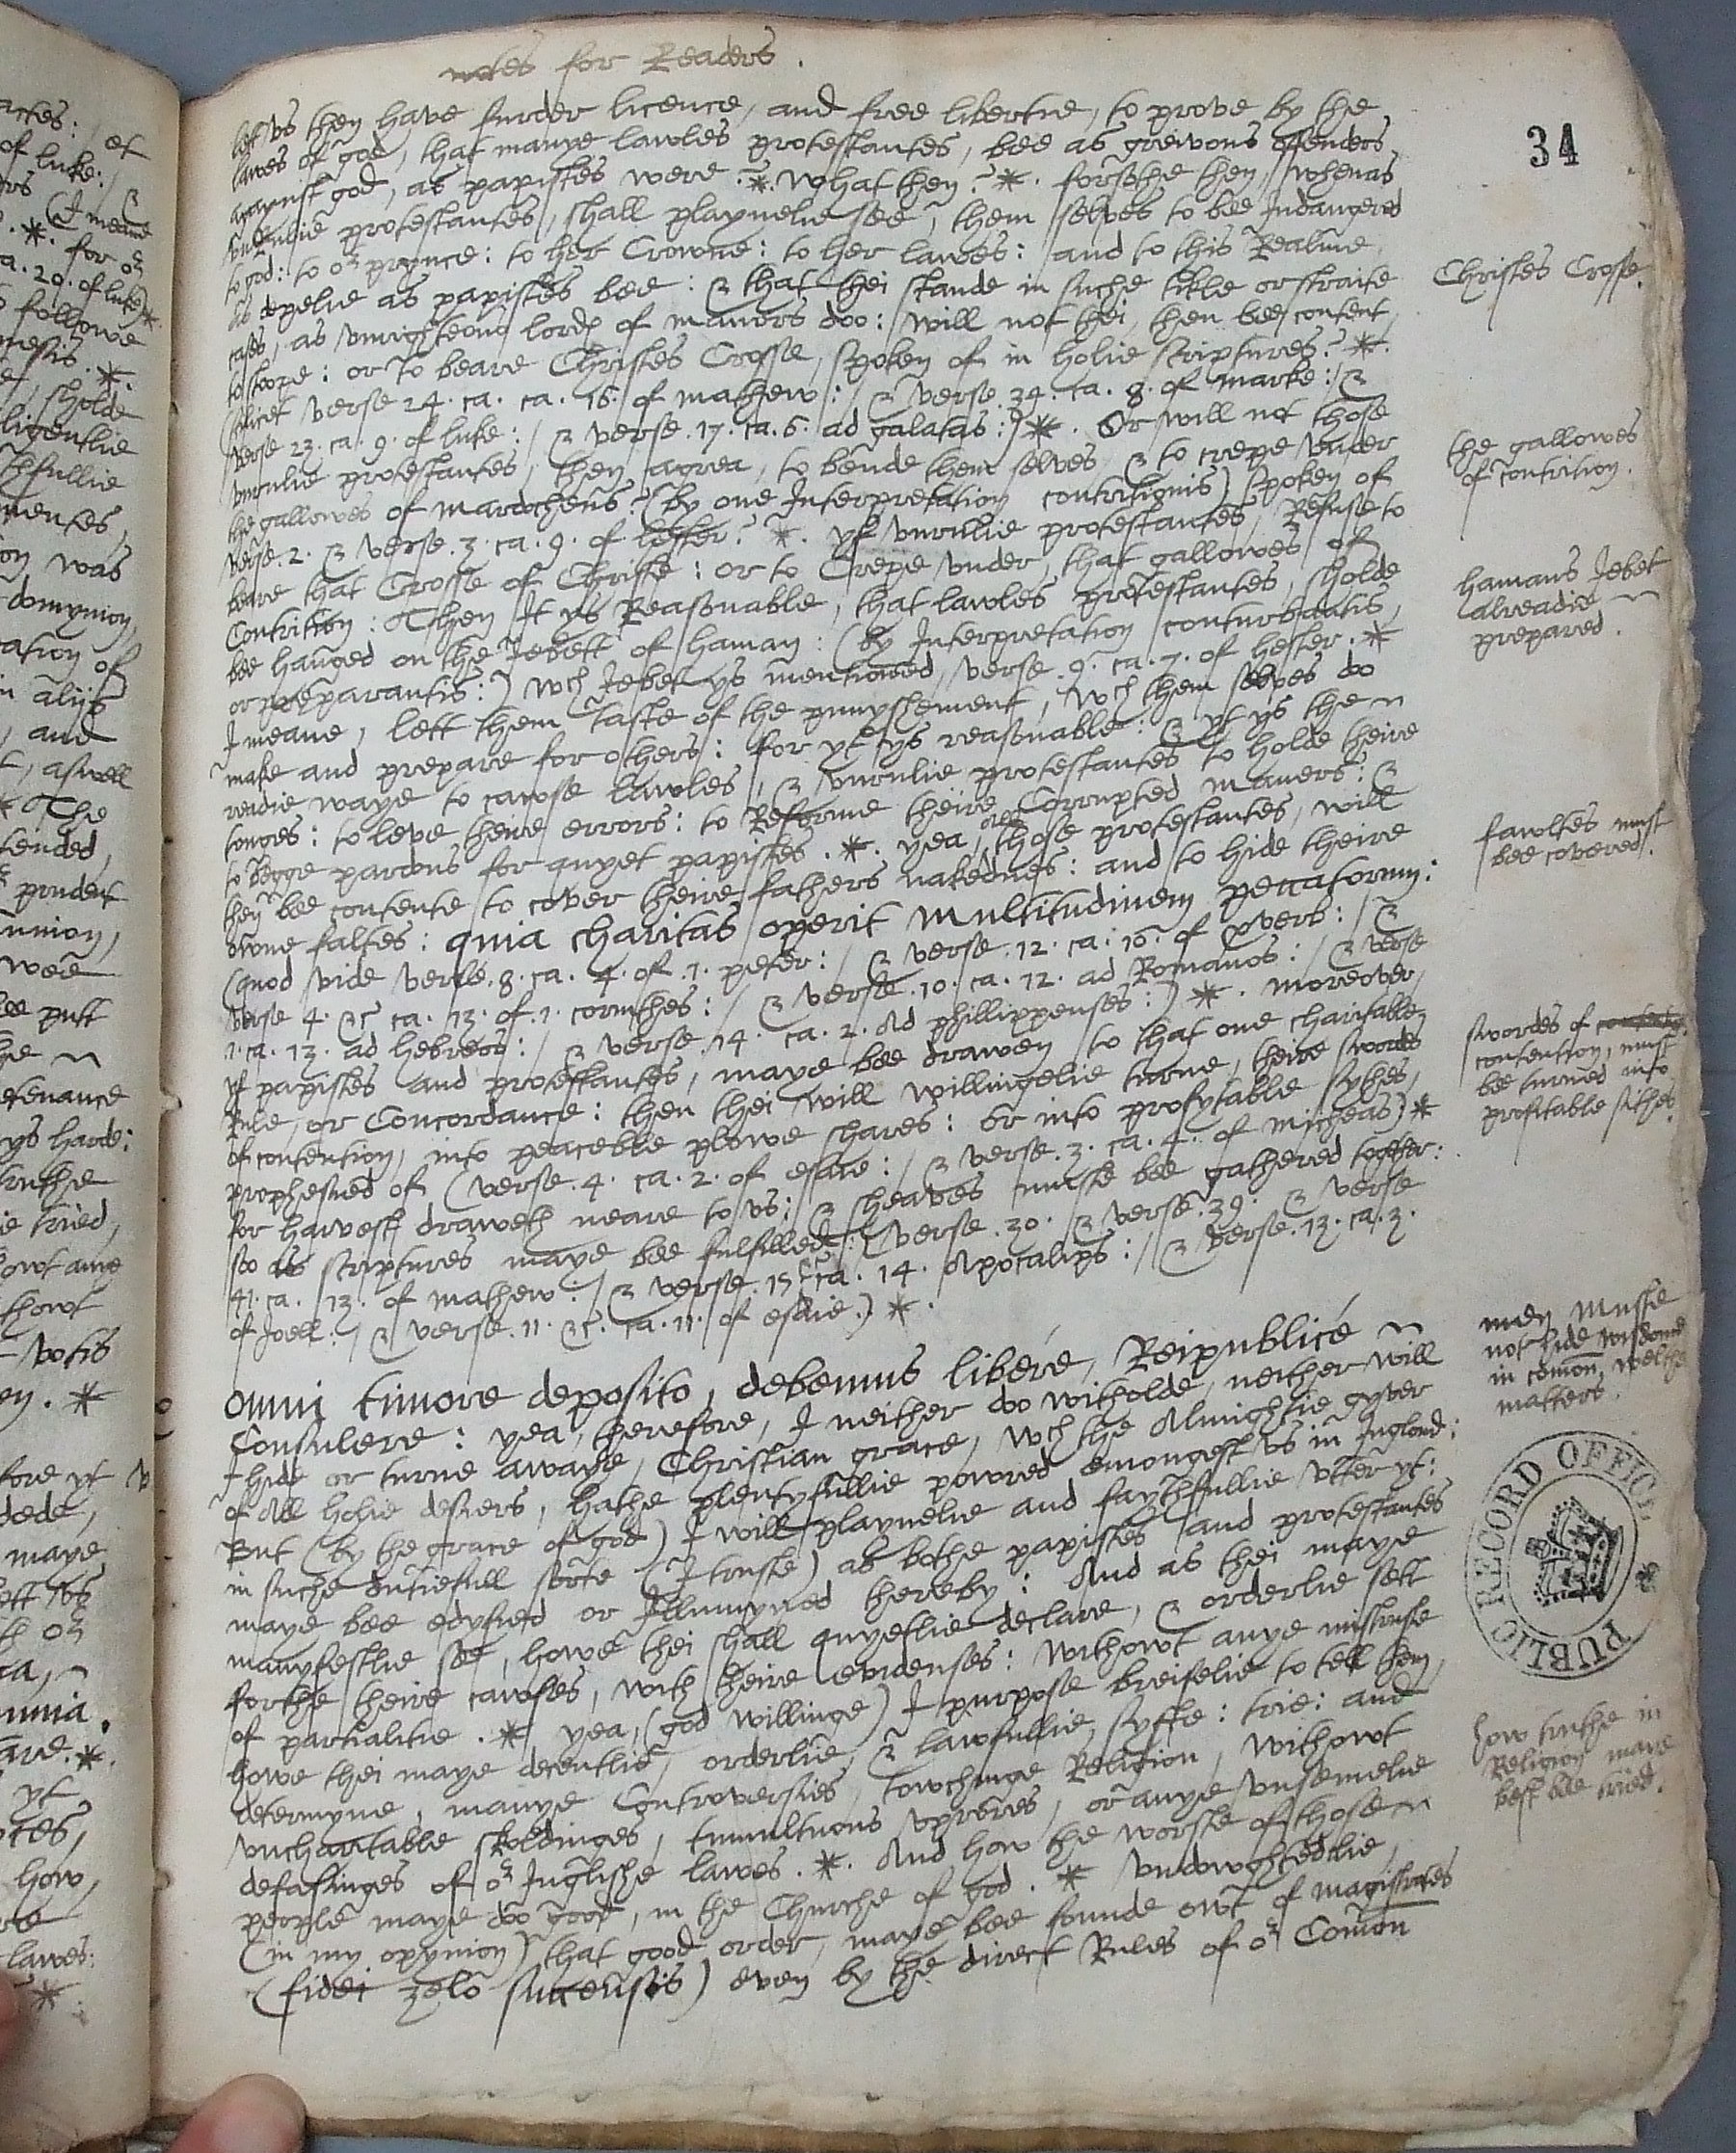 notes for Readers.
34
lett vs then have furder licence, and free libertie, to prove by the
lawes of god, that manye lawles protestantes, bee as greivous offenders
agaynst god, as papistes were? *. What then? *. forsothe then, whenas
vnrulie protestantes, shall playnelie see, them selves to bee Indangered
to god: to or prynce: to her Crowne: to her lawes: and to this Realme
as depelie as papistes bee: & that thei stande in suche tikle or straite
cases, as vnrighteous lordes of manors doo: will not thei, then bee content,
to stoope: or to beare Christes Crosse, spoken of in holie scriptures? *.
(scilicet verse 24. ca. ca. 16. of mathew: / & verse. 34. ca. 8. of marke: / &
verse 23. ca. 9. of luke: / & verse. 17. ca. 6. ad galatas:) *. Or will not those
vnrulie protestantes, then agrea, to bende them selves, & to crepe vnder
the gallowes of mardocheus? (by one Interpretation contritionis) spoken of
verse. 2. & verse. 3. ca. 9. of hester? *. yf vnrulie protestantes, Refuse to
beare that Crosse of Christe: or to Crepe vnder, that gallowes of
Contrition: Then It ys Reasonable, that lawles protestantes, sholde
bee hanged on the Jebett of haman: (by Interpretation conturbantis,
or preparantis:) wch Jebet ys mentioned, verse. 9. ca. 7. of hester. *
I meane, lett them taste of the punyshement, wch them selves do
make and prepare for others: for yt ys reasonable: & yt ys the
readie waye to cawse lawles, & vnrulie protestantes to holde theire
tonges: to leve theire errors: to Reforme theire Corrupted maners: &
to begge pardons for quyet papistes. *. yea, those protestantes, will
then bee contente to cover theire fathers nakednes: and to hide theire
owne faltes: quia charitas operit multitudinem peccatorum:
(quod vide verse. 8. ca. 4. of. 1. peter: / & verse. 12. ca. 10. of proverb: / &
verse 4. &c ca. 13. of. 1. corinthes: / & verse. 10. ca. 12. ad Romanos: / & verse
1. ca. 13. ad hebreos: / & verse. 14. ca. 2. Ad phillippenses:) *. moreover,
yf papistes and protestantes, maye bee drawen to that one charitable
Rule, or Concordance: then thei will willingelie turne, theire swordes
of contention, into peaceble plowe shares: or into profytable sythes,
prophesied of (verse. 4. ca. 2. of esaie: / & verse. 3. ca. 4. of micheas) *
for harvest draweth neare to vs: & sheaves muste bee gathered together:
soo as scriptures maye bee fulfilled: (verse. 30. & verse. 39. & verse
41. ca. 13. of mathew: / & verse. 15 ca. 14. Apocalips: / & verse. 13. ca. 3.
of Joell: / & verse. 11. &c. ca. 11. of esaie.) *.
Omni timore deposito, debemus libere, Reipublice
Consulere: yea, therefore, I neither doo witholde, neither will
I hide or turne awaye, Christian grace, wch the Almightie gyver
of All holie desiers, hathe plentyfullie powred emongest vs in Inglond:
But (by the grace of god) I will playnelie and faythfullie vtter yt:
in suche dutiefull sorte (I truste) as bothe papistes and protestantes
maye bee edyfied or Illumyned thereby: And as thei maye
manyfestlie see, howe thei shall quyetlie declare, & orderlie sett
forthe theire cawses, with theire evidenses: withowt anye mistruste
of partialitie. * yea, (god willinge) I purpose breifelie to tell them,
howe thei maye decentlie, orderlie, & lawfullie, syfte: trie: and
determyne, manye Controversies, towchinge Religion, withowt
vncharitable skoldinges, tumultuous vprores, or anye vnsemelie
defasinges of or Inglishe lawes. *. And how the worste of those
people maye doo good, in the Churche of god. * vndowghtedlie,
(in my opynion) that good order, maye bee founde owt of magistrates
(fidei zelo succensis) even by the direct Rules of or Comon
Christes Crosse.
the gallowes
of contrition.
hamans Jebet
alreadie
prepared.
fawltes must
bee covered.
swordes of
contention, must
bee turned into
profitable sithes.
men muste
not hide wisdome
in comon welthe
matters.
PUBLIC RECORD OFFICE
how truthe in
Religion maye
best bee tried.